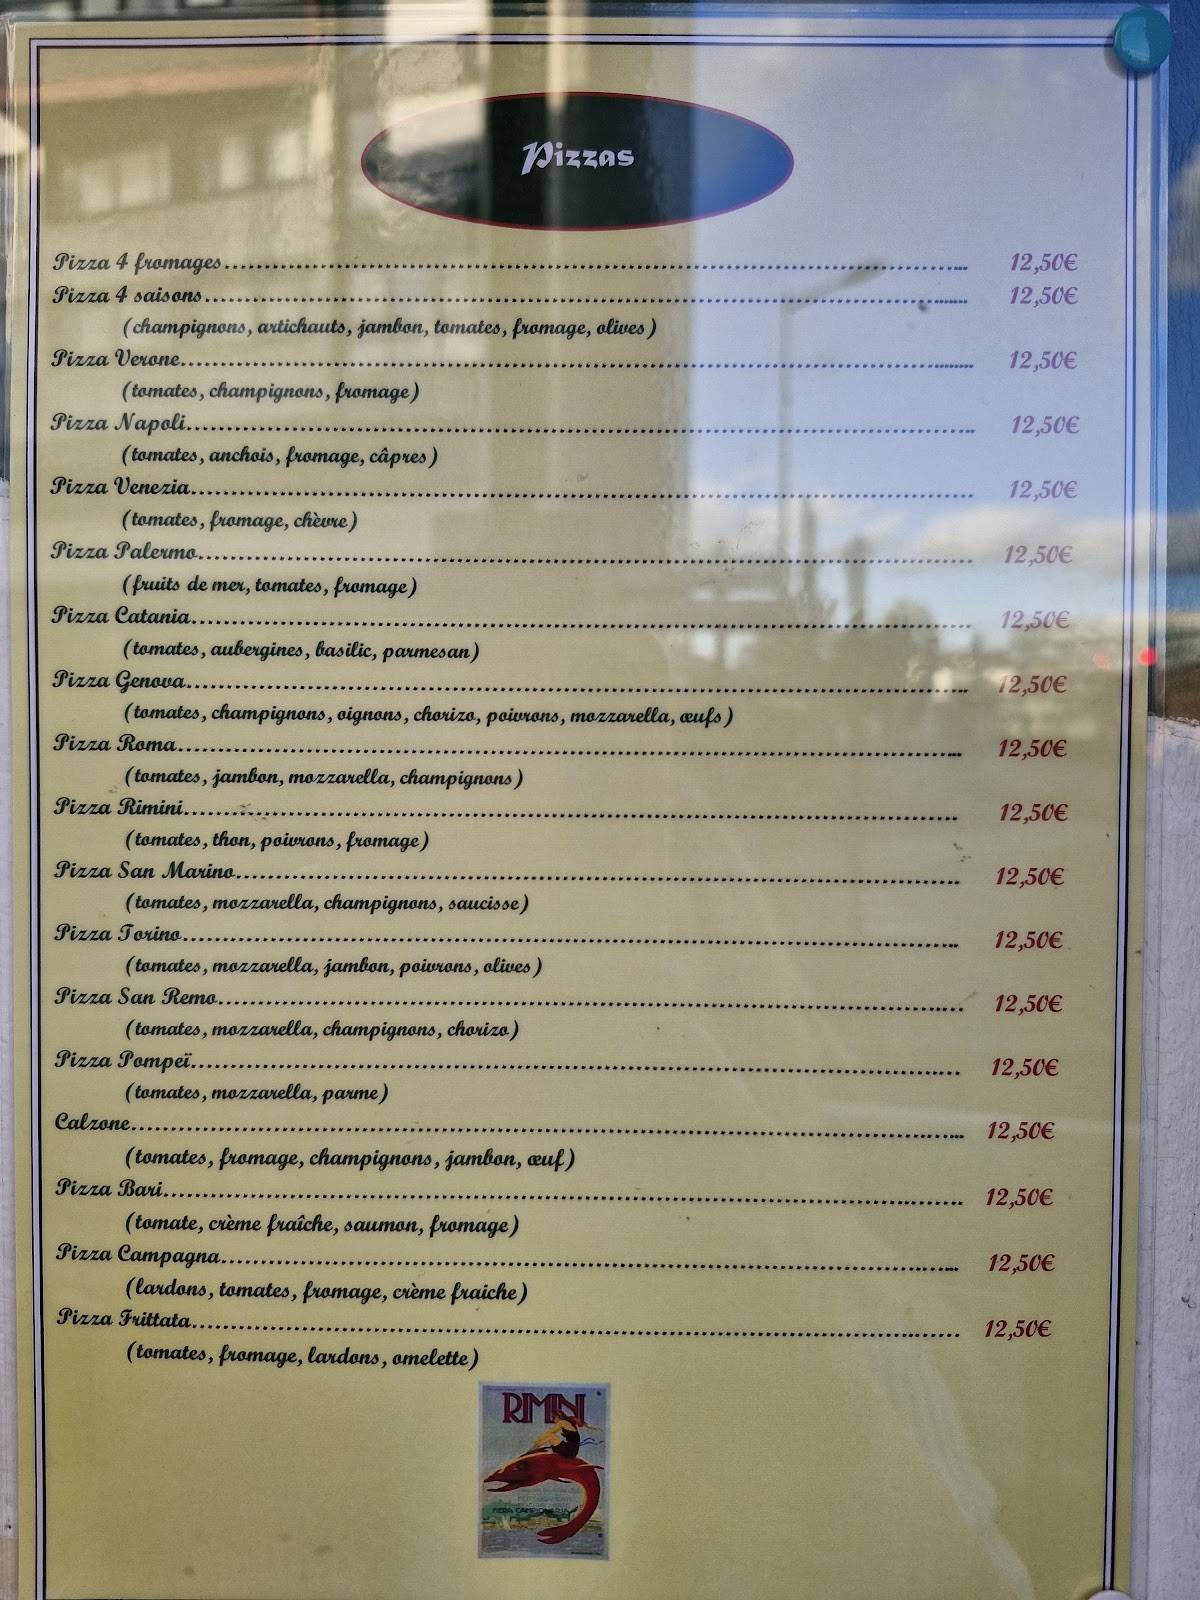 Pizzas
Pizza 4 fromages 12,50€
Pizza 4 saisons 12,50€
(champignons, artichauts, jambon, tomates, fromage, olives)
Pizza Verone 12,50€
(tomates, champignons, fromage)
Pizza Napoli 12,50€
(tomates, anchois, fromage, câpres)
Pizza Venezia 12,50€
(tomates, fromage, chèvre)
Pizza Palermo 12,50€
(fruits de mer, tomates, fromage)
Pizza Catania 12,50€
(tomates, aubergines, basilic, parmesan)
Pizza Genova 12,50€
(tomates, champignons, oignons, chorizo, poivrons, mozzarella, œufs)
Pizza Roma 12,50€
(tomates, jambon, mozzarella, champignons)
Pizza Rimini 12,50€
(tomates, thon, poivrons, fromage)
Pizza San Marino 12,50€
(tomates, mozzarella, champignons, saucisse)
Pizza Torino 12,50€
(tomates, mozzarella, jambon, poivrons, olives)
Pizza San Remo 12,50€
(tomates, mozzarella, champignons, chorizo)
Pizza Pompeï 12,50€
(tomates, mozzarella, parme)
Calzone 12,50€
(tomates, fromage, champignons, jambon, œuf)
Pizza Bari 12,50€
(tomate, crème fraîche, saumon, fromage)
Pizza Campagna 12,50€
(lardons, tomates, fromage, crème fraiche)
Pizza Frittata 12,50€
(tomates, fromage, lardons, omelette)
RIMINI